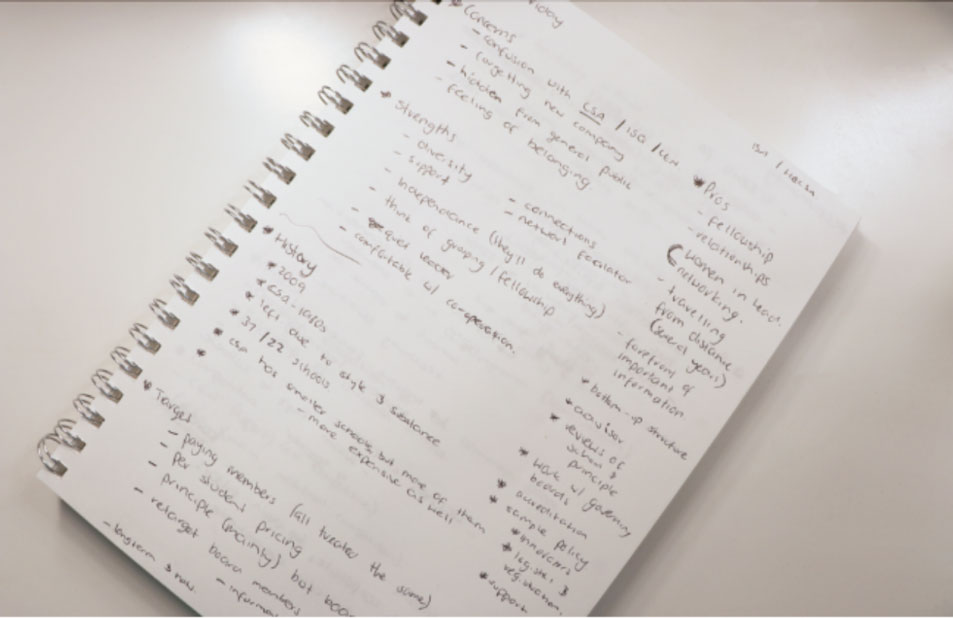 Concerns
- confusion with CSA / ISO /
- forgetting new company
- hidden from general public
feeling of belonging
* Strengths
- diversity
- support
- connections
- network facilitator
- independance (they'll do everything)
think of grouping / fellowship
- equal
- comfortable w/ co-operation.
* History
* 2009
* CSA - 1980s
* left due to style & substance
* 37 / 22 schools
* CSA has smaller schools but more of them
- more expensive as well
* Target
- paying members (all treated the same)
- Per student pricing
principle (mainly) but
- retarget board members
- longterm & new.
* Pros
- fellowship
- relationships
(women in lead.
networking.
- travelling
from distance
(several years)
- forefront of
important
information
* bottom-up structure
* advisor
* reviews of
school &
principle
* work w/ governing
boards
* accreditation
* sample policy
* innovators
* logistics &
registration.
* support